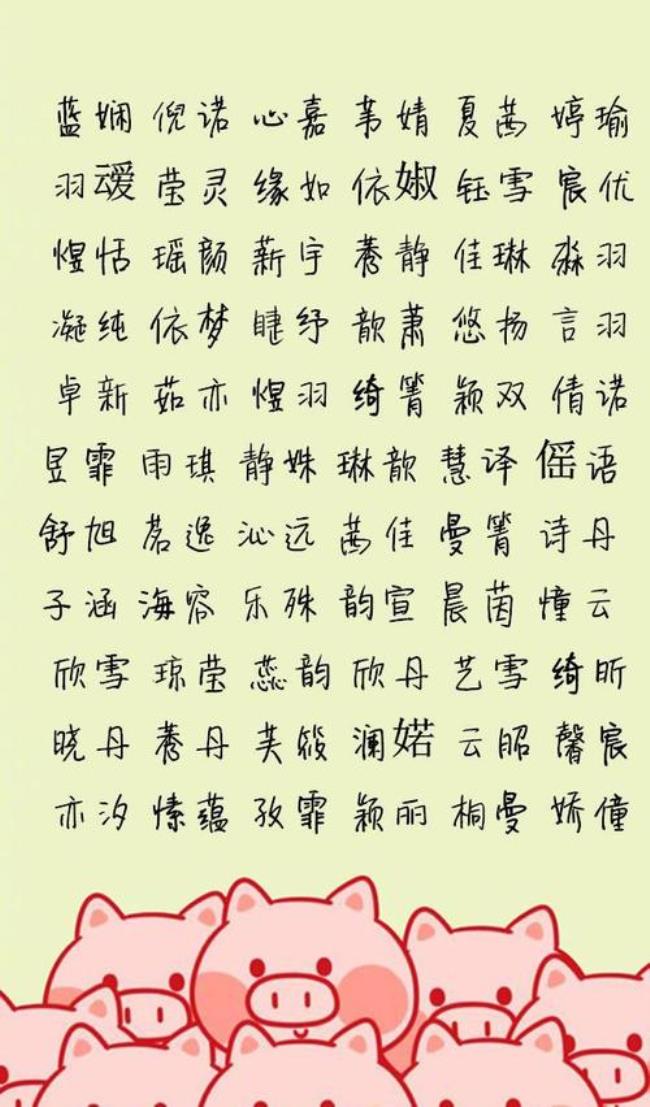 蓝娴 倪诺 心嘉 苇婧 夏茜 婷瑜
羽叆 莹灵 缘如 依婌 钰雪 宸优
煜恬 瑶颜 薪宇 鸶静 佳琳 淼羽
凝纯 依梦 睫纾 歆萧 悠扬 言羽
卓新 茹亦 煜羽 绮箐 颖双 倩诺
昱霏 雨琪 静姝 琳歆 慧译 傜语
舒旭 茗逸 沁远 茜佳 曼箐 诗丹
子涵 海容 乐殊 韵宣 晨茵 憧云
欣雪 琼莹 蕊韵 欣丹 艺雪 绮昕
晓丹 丹 芙筱 澜婼 云昭 馨宸
亦汐 愫蕴 孜霏 颖丽 桐曼 娇僮